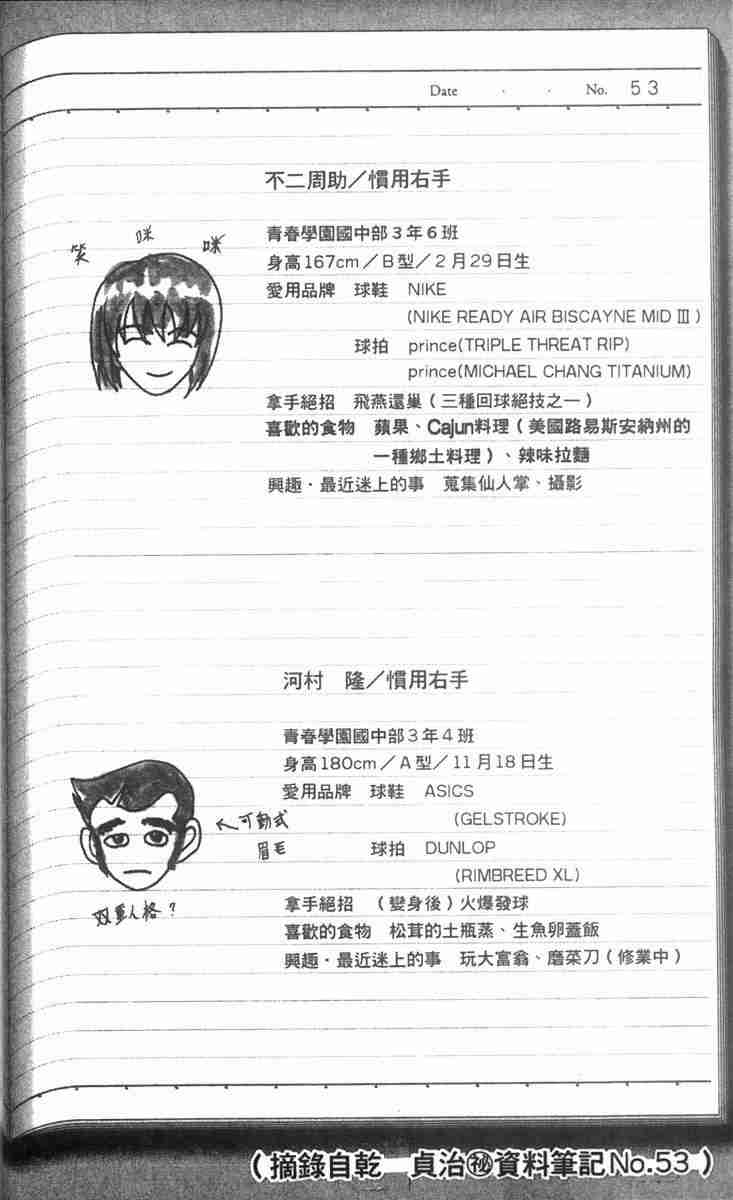 Date ・ ・ No. 53
不二周助／慣用右手
笑 咪 咪
青春學園國中部3年6班
身高167cm／B型／2月29日生
愛用品牌 球鞋 NIKE
(NIKE READY AIR BISCAYNE MID Ⅲ)
球拍 prince(TRIPLE THREAT RIP)
prince(MICHAEL CHANG TITANIUM)
拿手絕招 飛燕還巢（三種回球絕技之一）
喜歡的食物 蘋果、Cajun料理（美國路易斯安納州的
一種鄉土料理）、辣味拉麵
興趣・最近迷上的事 蒐集仙人掌、攝影
河村 隆／慣用右手
青春學園國中部3年4班
身高180cm／A型／11月18日生
愛用品牌 球鞋 ASICS
(GELSTROKE)
↖可動式
眉毛
球拍 DUNLOP
(RIMBREED XL)
双重人格？
拿手絕招 （變身後）火爆發球
喜歡的食物 松茸的土瓶蒸、生魚卵蓋飯
興趣・最近迷上的事 玩大富翁、磨菜刀（修業中）
（摘錄自乾 貞治㊙資料筆記No.53）